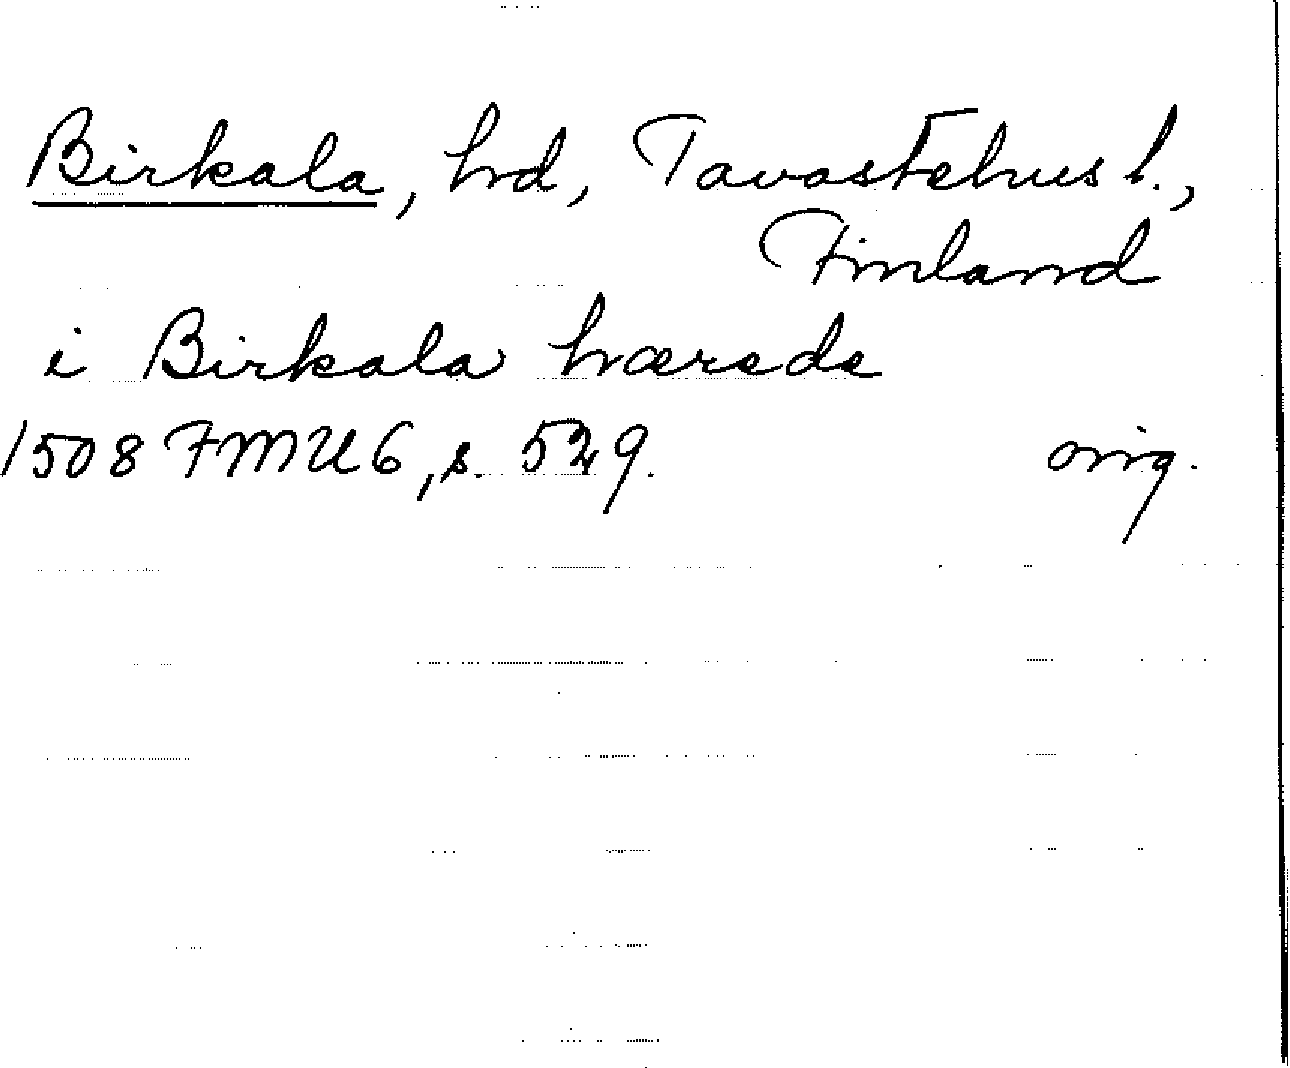 Birkala, hd, Tavastehus l.,
Finland
i Birkala hærede
1508 FMU 6, s. 529. orig.